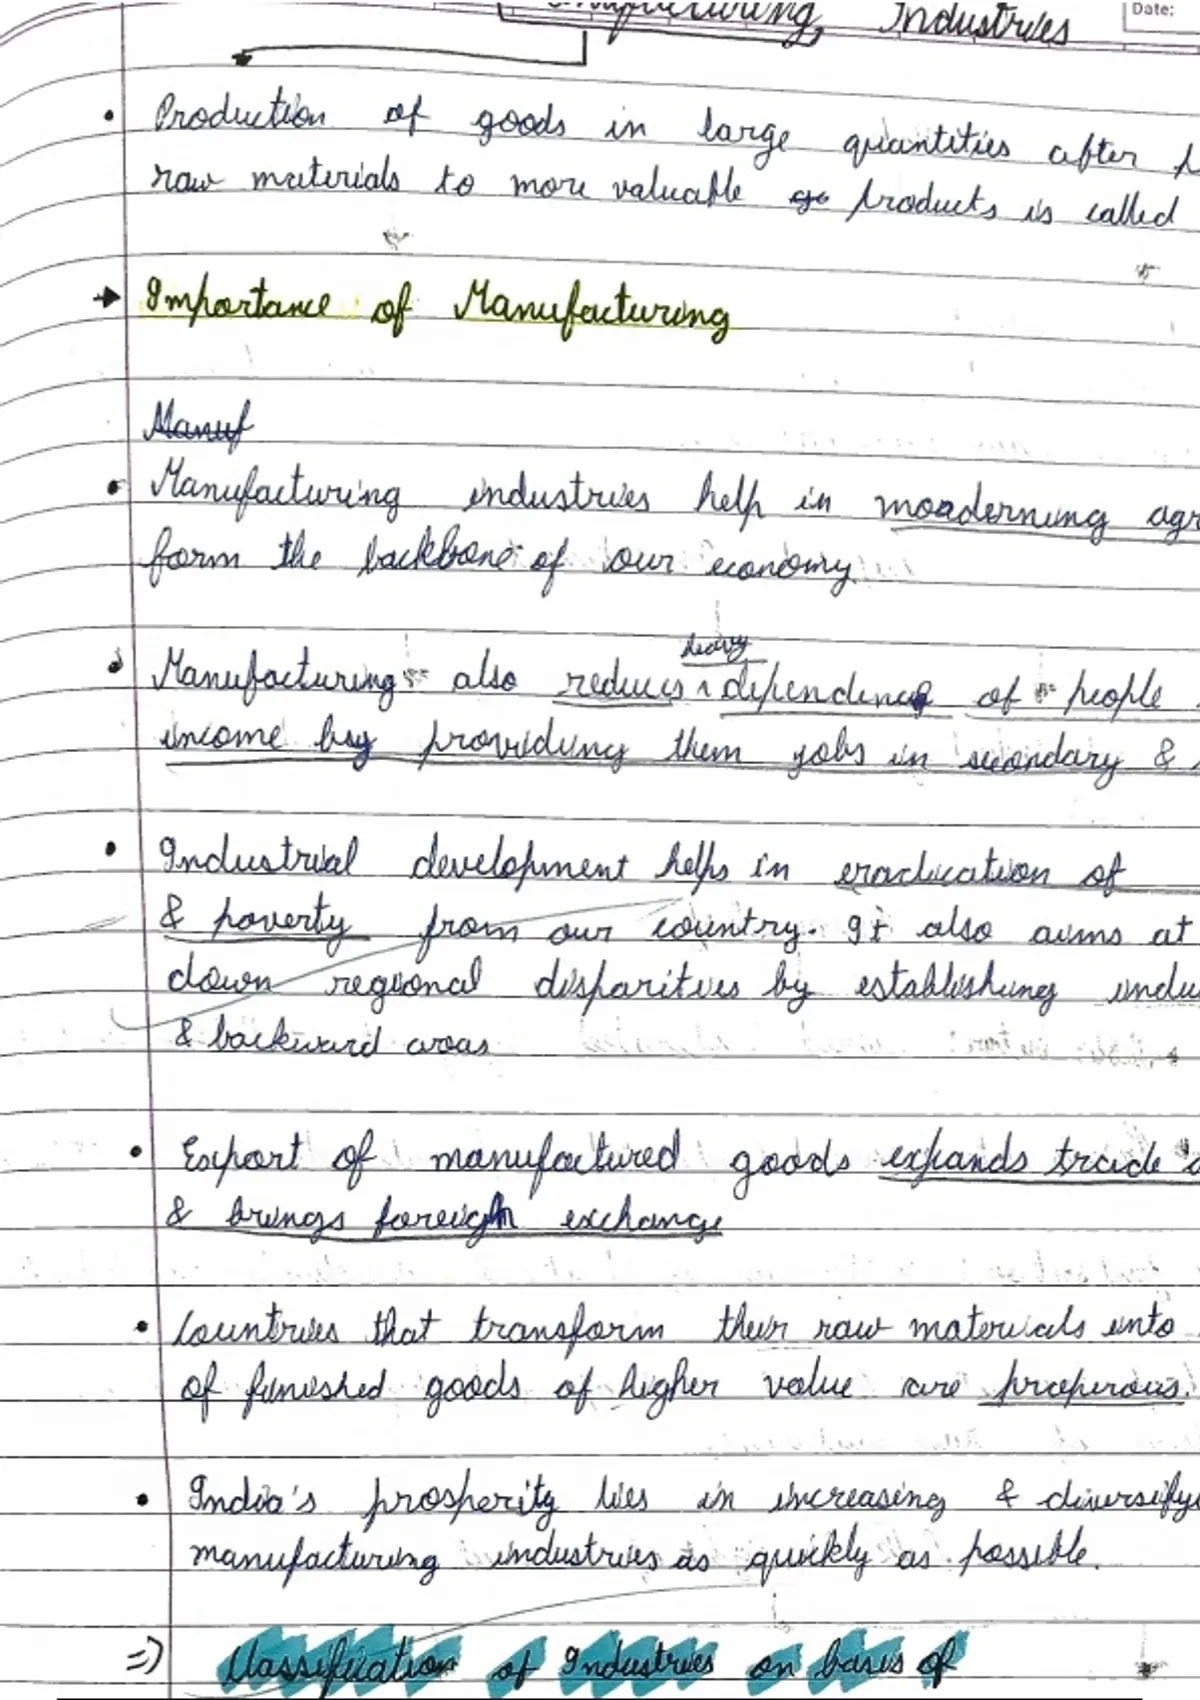 Manufacturing Industries
Date:
• Production of goods in large quantities after
raw materials to more valuable go products is called
→ Importance of Manufacturing
Manuf
• Manufacturing industries help in moadernung agr
form the backbone of our economy
heavy
• Manufacturing also reduces ^ dependence of people
income by providing them jobs in secondary &
• Industrial development helps in eradication of
& poverty from our country. It also aims at
down regional disparities by establishing indu
& backward areas
• Export of manufactured goods expands trade
& brings foreign exchange
• Countries that transform their raw materials into
of finished goods of higher value are prosperous.
• India's prosperity lies in increasing & diversifyi
manufacturing industries as quickly as possible.
=) Classification of Industries on basis of